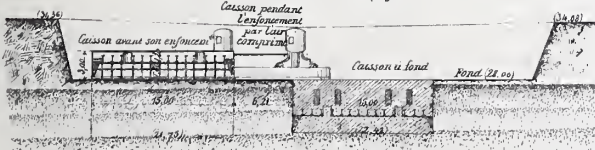 Caisson pendant
l'enfoncement
par l'air
comprimé
(34,08)
Caisson avant son enfoncemt
3,00
Caisson à fond
Fond (28.00)
15,00
6,21
15,00